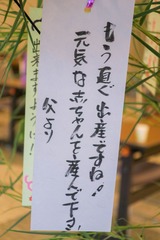 もう直ぐ出産ですね。
元気な赤ちゃんを産んで下さい
父より
出来ますように!